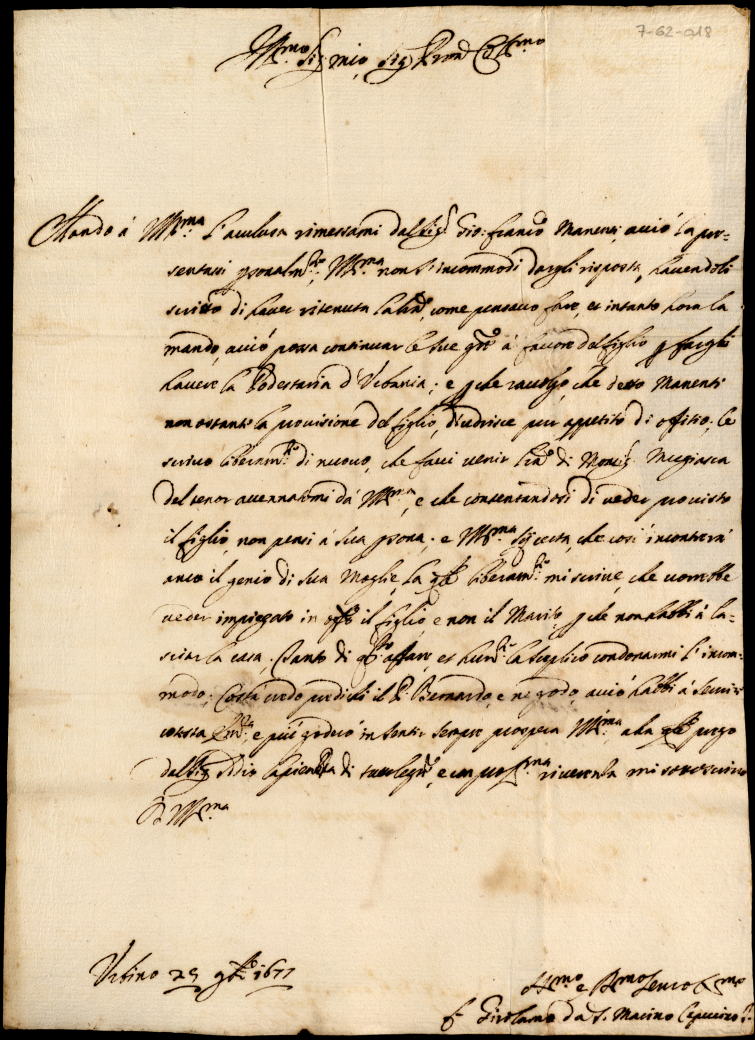 7-62-018
Ill.mo Sig.r mio, Sig.r P.ron Coll.mo
Mando à V.S. Ill.ma l'acclusa rimessami dal Sig.r Gio: Franc.o Manenti, acciò la pre-
sentassi p.sonalm.te; V.S. Ill.ma non s'incommodi dargli risposta, havendoli
scritto di haver ritenuta la l'ra, come pensavo fare, et intanto hora la
mando, acciò possa continuar le sue gr.e à favore del figlio p fargli
havere la Podestaria d'Urbania; e p che raccolgo, che detto Manenti
non ostante la provisione del figlio, pur appetito di offitio, le
scrivo liberam.te di nuovo, che facci venir l'ra di Mons.r Mugiasca
del tenor accennatomi da V.S. Ill.ma, e che contentandosi di veder provisto
il figlio, non pensi à sua p.sona; e V.S. Ill.ma sij certa, che così incontrerà
anco il genio di sua Moglie, la q.le liberam.te mi scrive, che vorrebbe
veder impiegato in off.o il figlio, e non il Marito, p che non habbi à la-
sciar la casa. Tanto di q.to affare, et hum.te la supplico condonarmi l'incom-
modo; Costà credo predichi il P. Bernardo, e ne godo, acciò habbi à servir
cotesta e più goderò in sentir sempre prospera V.S. Ill.ma, alla q.le prego
dal Sig.r Iddio la pienezza di sue e con prof.ma riverenza mi sottoscrivo
D V.S. Ill.ma
Urbino 25 1677
H.mo e D.mo Servo
f. Girolamo da S. Marino Capuccino